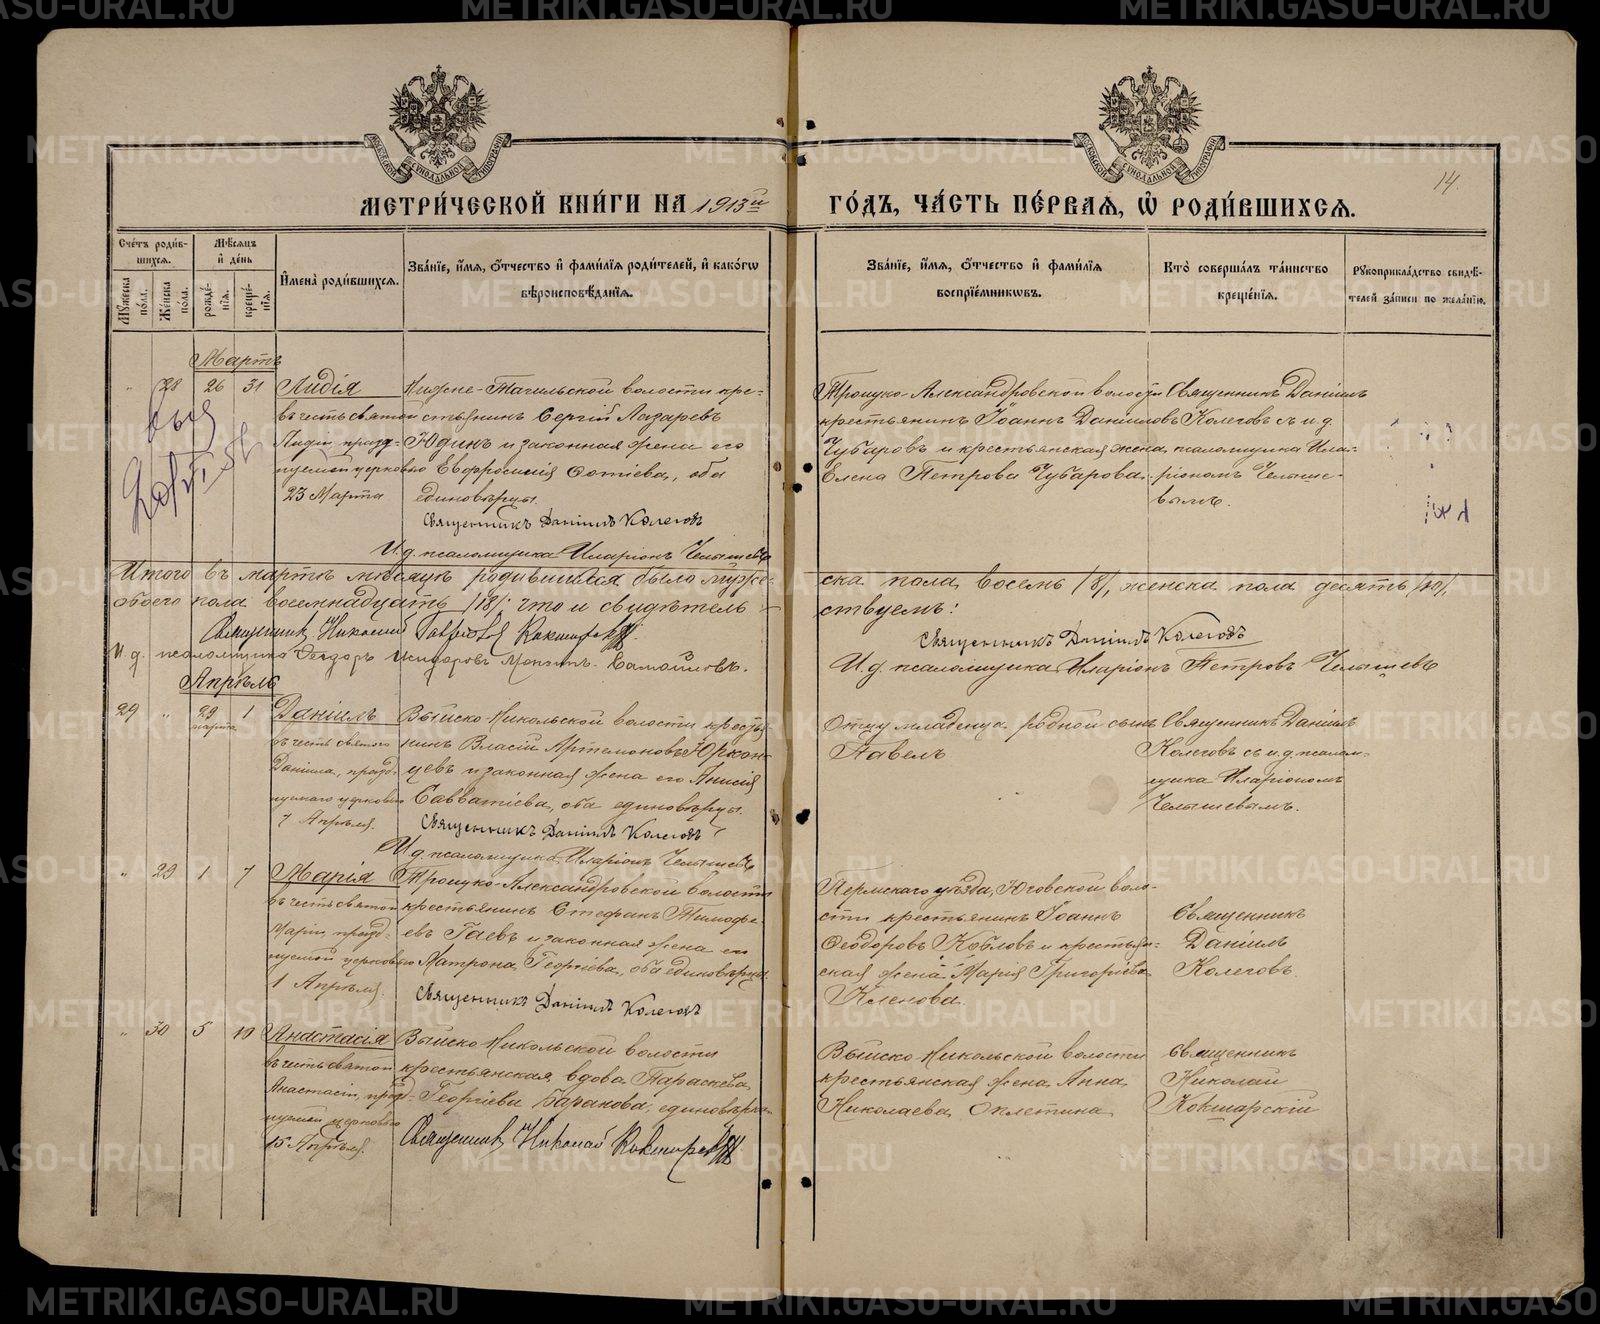 МЕТРИ́ЧЕСКОЙ КНИ́ГИ НА 1913й
ГО́ДЪ, ЧА́СТЬ ПЕ́РВАѦ, Ѽ РОДИ́ВШИХСѦ.
14.
МОСКОВСКОЙ СѴНОДАЛЬНОЙ ТИПОГРАФІИ
МОСКОВСКОЙ СѴНОДАЛЬНОЙ ТИПОГРАФІИ
Сче́тъ роди́в-
шихсѧ.
Мꙋ́жеска по́ла.
Же́нска по́ла.
Мѣ́сѧцъ и де́нь
рожде́-
нїѧ.
креще́-
нїѧ.
И҆мена̀ роди́вшихсѧ.
Зва́нїе, и҆́мѧ, ѻ҆́тчество и҆ фами́лїѧ роди́телей, и҆ како́гѡ
вѣроисповѣ́данїѧ.
Зва́нїе, и҆́мѧ, ѻ҆́тчество и҆ фами́лїѧ
воспрїе́мникѡвъ.
Кто̀ соверша́лъ та́инство
креще́нїѧ.
Рꙋкоприкла́дство свидѣ́-
телей за́писи по жела́нїю.
Мартъ
" 28 26 31
Лидія
въ честь святой
Лидіи, празд-
нуемой церковью
23 Марта
Нижне-Тагильской волости кре-
стьянинъ Сергій Лазаревъ
Юдинъ и законная жена его
Евфросинія Фотіева, оба
единовѣрцы
Священникъ Даніилъ Колеговъ
И.д. псаломщика Иларіонъ Челышевъ
Троицко-Александровской волости
крестьянинъ Іоаннъ Даниловъ
Чубаровъ и крестьянская жена
Елена Петрова Чубарова.
Священникъ Даніилъ
Колеговъ съ и.д.
псаломщика Ила-
ріономъ Челыше-
вымъ.
Итого въ мартѣ мѣсяцѣ родившихся было муже-
ска пола восемь /8/, женска пола десять /10/,
обоего пола восемнадцать /18/: что и свидѣтель-
ствуемъ:
Священникъ Николай Кокшарскій
И.д. псаломщика Ѳеодоръ
Священникъ Даніилъ Колеговъ
И.д. псаломщика Иларіонъ Петровъ Челышевъ
Апрѣль
29 " 29 марта 1
Даніилъ
въ честь святого
Даніила, празд-
нуемаго церковью
7 Апрѣля.
Выйско-Никольской волости кресть-
нинъ Власій Артемоновъ Юркон-
цевъ и законная жена его Анисія
Савватіева, оба единовѣрцы.
Священникъ Даніилъ Колеговъ
И.д. псаломщика Иларіонъ Челышевъ
Отцу младенца родной сынъ
Павелъ
Священникъ Даніилъ
Колеговъ съ и.д. псалом-
щика Иларіономъ
Челышевымъ.
" 29 1 7
Марія
въ честь святой
Маріи, празд-
нуемой церковью
1 Апрѣля.
Троицко-Александровской волости
крестьянинъ Стефанъ Тимофе-
евъ Гаевъ и законная жена его
Матрона Георгіева, оба единовѣрцы.
Священникъ Даніилъ Колеговъ
Пермскаго уѣзда, Юговской воло-
сти крестьянинъ Іоаннъ
Ѳеодоровъ Кобловъ и крестьян-
ская жена Марія Григоріева
Кленова.
Священникъ
Даніилъ
Колеговъ.
" 30 5 10
Анастасія
въ честь святой
Анастасіи, празд-
нуемой церковью
15 Апрѣля.
Выйско-Никольской волости
крестьянская вдова Параскева
Георгіева Баранова, единовѣрка
Священникъ Николай Кокшарскій
Выйско-Никольской волости
крестьянская жена Анна
Николаева Оклетина
Священникъ
Николай
Кокшарскій